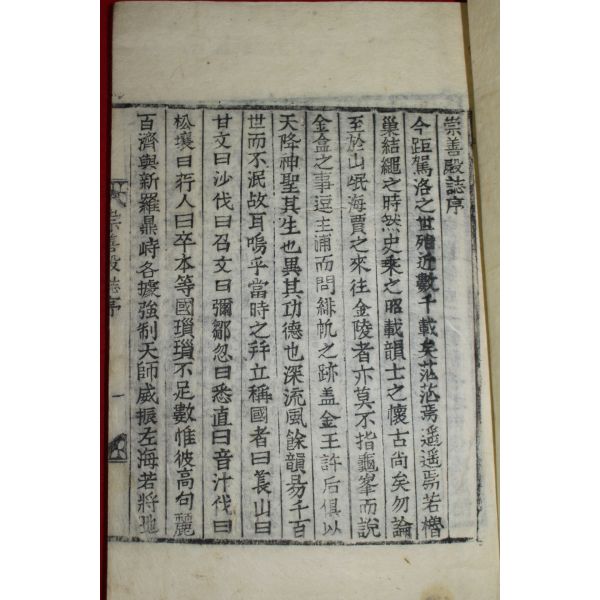 崇善殿誌序
今距駕洛之世殆近數千載矣茫茫焉遥遥焉若櫓
巢結繩之時然史乘之昭載韻士之懷古尚矣勿論
至於山氓海賈之來往金陵者亦莫不指龜峯而說
金盒之事逗主浦而問緋帆之跡盖金王許后俱以
天降神聖其生也異其功德也深流風餘韻易千百
世而不泯故耳嗚乎當時之并立稱國者曰萇山曰
甘文曰沙伐曰召文曰彌鄒忽曰悉直曰音汁伐曰
松壤曰荇人曰卒本等國瑣瑣不足數惟彼高句麗
百濟與新羅鼎峙各據強制天師威振左海若將地
崇善殿誌序
一